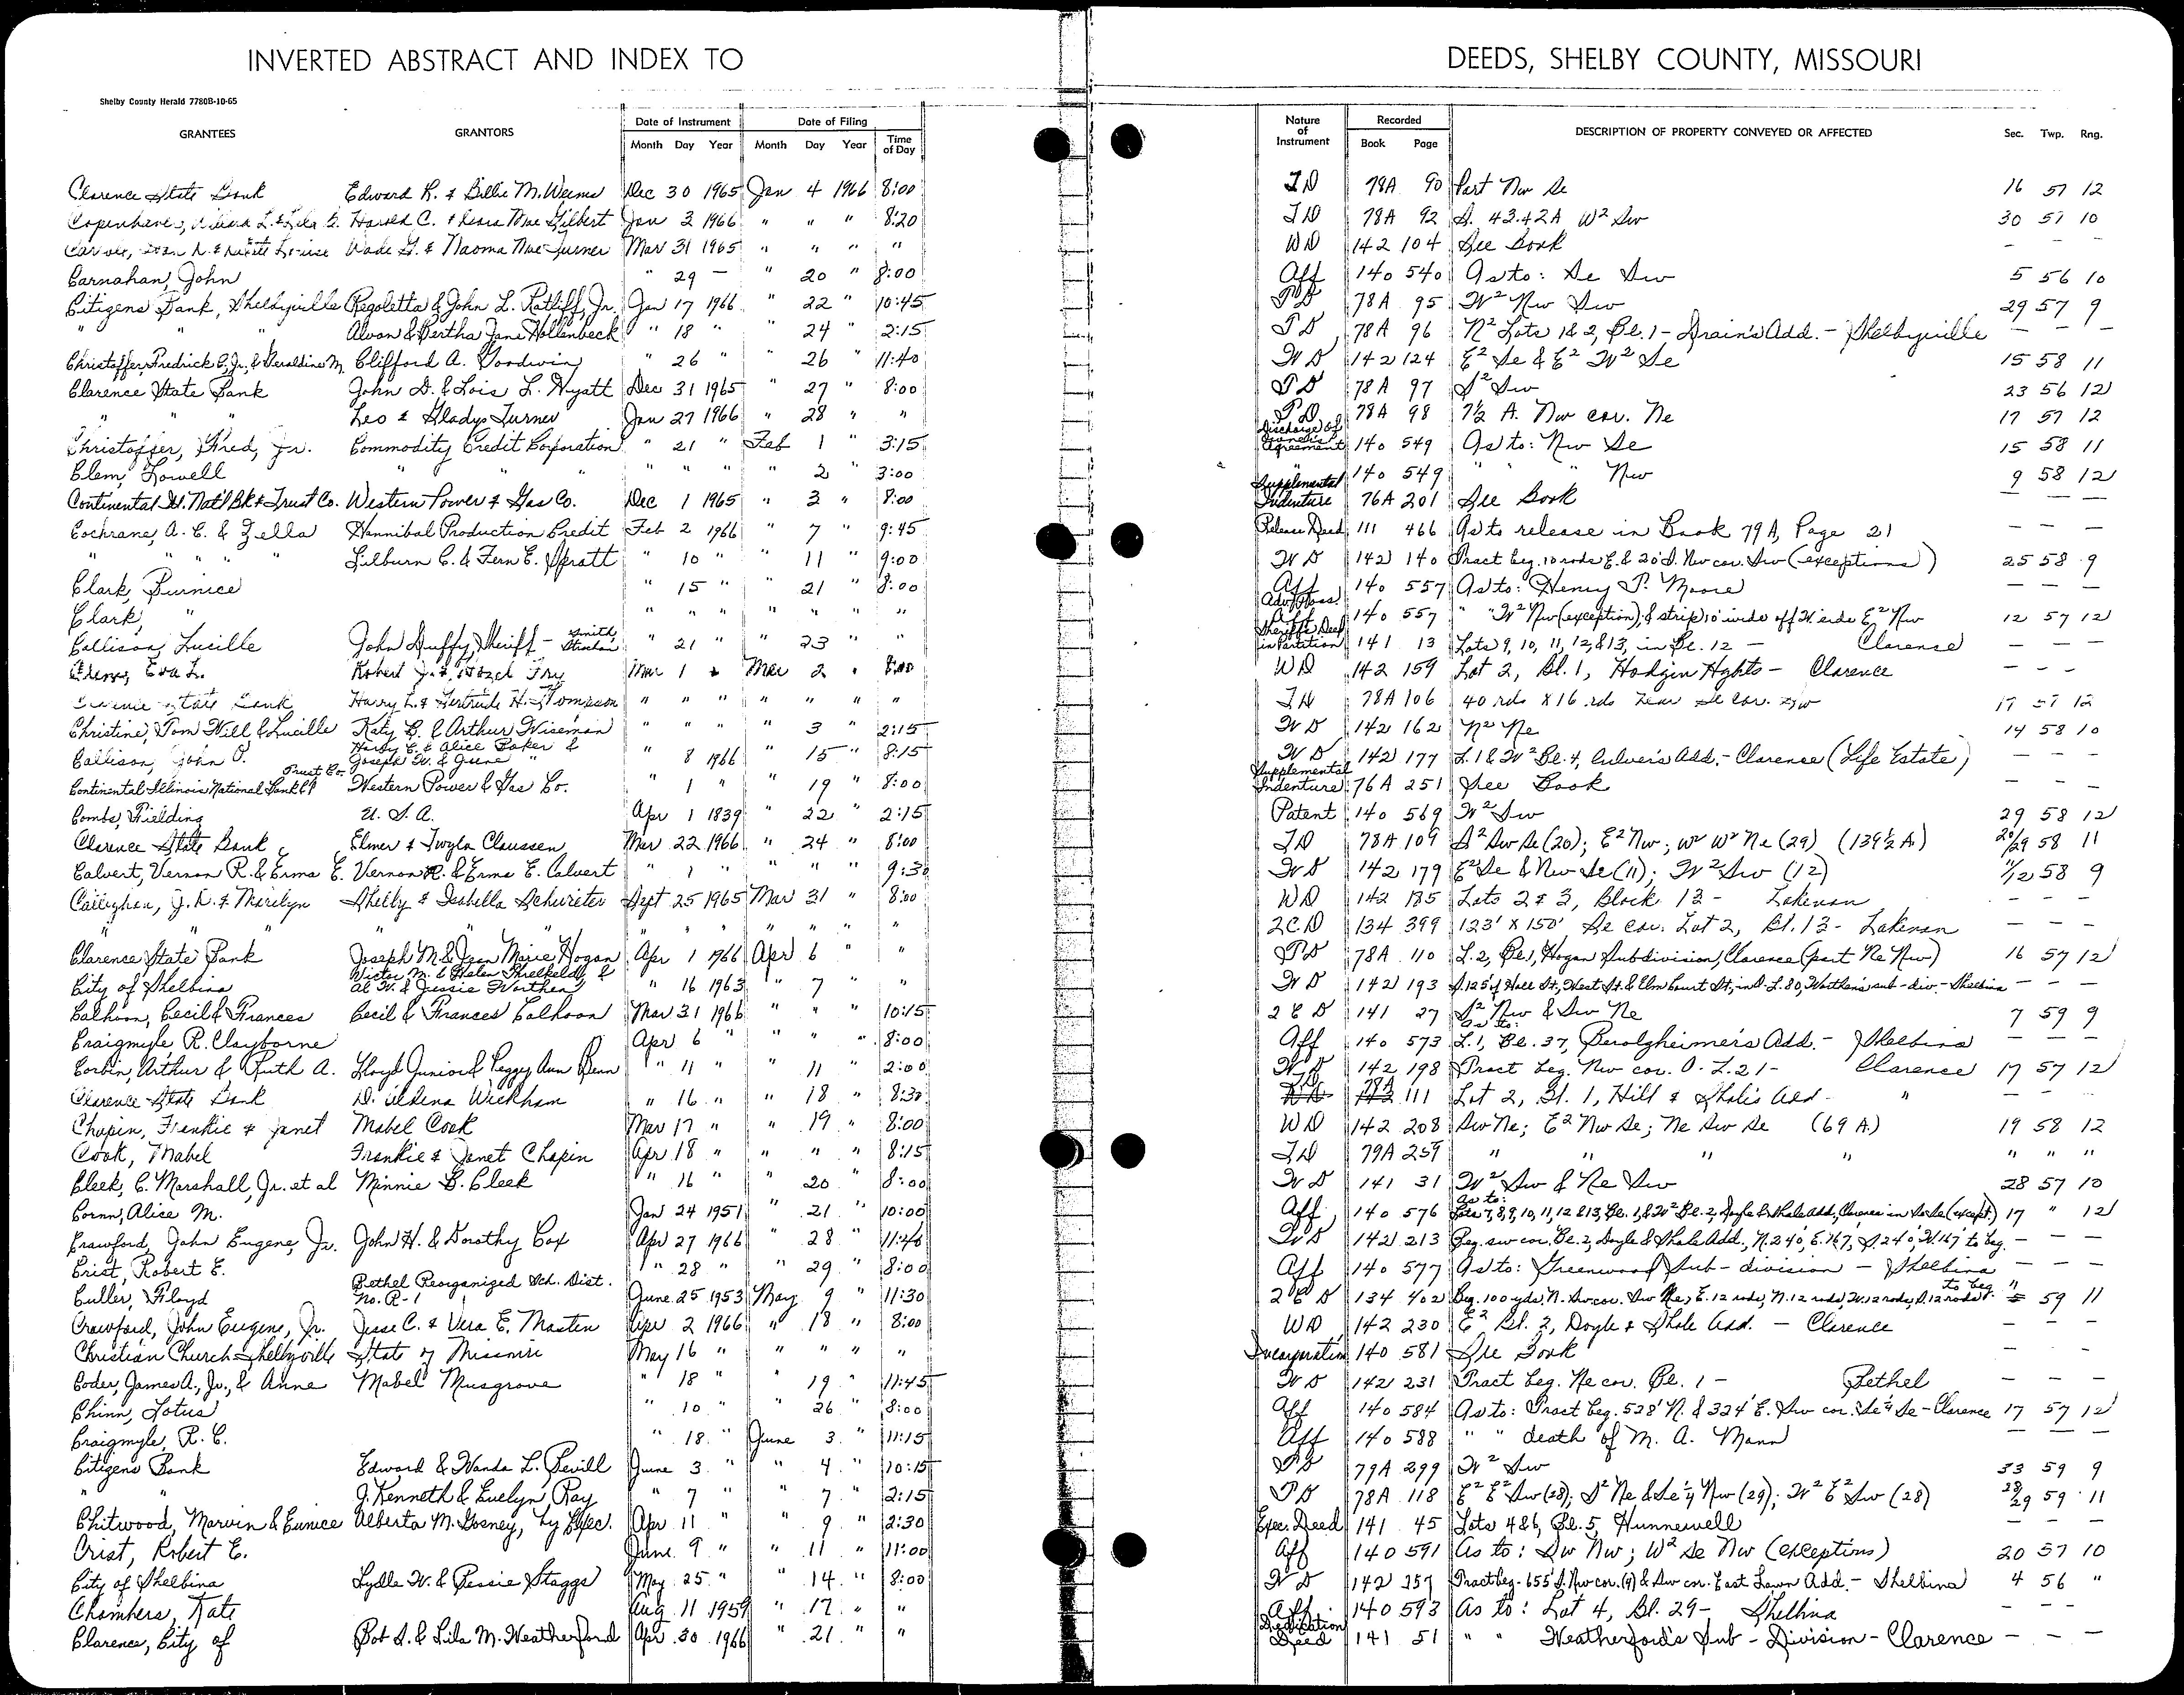 INVERTED ABSTRACT AND INDEX TO DEEDS, SHELBY COUNTY, MISSOURI
Shelby County Herald 7780B-10-65
GRANTEES GRANTORS Date of Instrument Month Day Year Date of Filing Month Day Year Time of Day Nature of Instrument Recorded Book Page DESCRIPTION OF PROPERTY CONVEYED OR AFFECTED Sec. Twp. Rng.
Clarence State Bank Edward R. & Billie M. Weems Dec 30 1965 Jan 4 1966 8:00 TD 78A 90 Part Nw Se 16 57 12
Copenhaver, L. & Harold C. & Mae Gilbert Jan 3 1966 " " " 8:20 TD 78A 92 S. 43.42A W² Sw 30 57 10
Wade G. & Naoma Mae Turner Mar 31 1965 " " " " WD 142 104 See Book — — —
Carnahan, John " 29 — " 20 " 8:00 Aff 140 540 As to: Se Sw 5 56 10
Citizens Bank, Shelbyville Regoletta & John L. Ratliff, Jr. Jan 17 1966 " 22 " 10:45 TD 78A 95 W² Nw Sw 29 57 9
" " " Alvan & Bertha Jane Hollenbeck " 18 " " 24 " 2:15 TD 78A 96 N² Lots 1 & 2, Bl. 1 - Drain's Add. - Shelbyville — — —
Christoffer, Fredrick C., Jr., & Geraldine M. Clifford A. Goodwin " 26 " 26 11:40 WD 142 124 E² Se & E² W² Se 15 58 11
Clarence State Bank John D. & Lois L. Hyatt Dec 31 1965 " 27 " 8:00 TD 78A 97 S² Sw 23 56 12
" " " Leo & Gladys Turner Jan 27 1966 " 28 " " TD 78A 98 7½ A. Nw cor. Ne 17 57 12
Christoffer, Fred, Jr. Commodity Credit Corporation " 21 " Feb 1 " 3:15 Discharge of Agreement 140 549 As to: Nw Se 15 58 11
Clem, Lowell " " " " " " " 2 " 3:00 140 549 " " Nw 9 58 12
Continental Ill. Nat'l Bk & Trust Co. Western Power & Gas Co. Dec 1 1965 " 3 " 8:00 Supplemental Indenture 76A 201 See Book — — —
Cochrane, A. C. & Zella Hannibal Production Credit Feb 2 1966 " 7 " 9:45 Release Deed 111 466 As to release in Book 79A, Page 21 — — —
" " " Lilburn C. & Fern E. Spratt " 10 " " 11 " 9:00 WD 142 140 Tract beg. 10 rods E. & 20' S. Nw cor. Sw (exceptions) 25 58 9
Clark, Burnice " 15 " 21 " 8:00 Aff 140 557 As to: Henry T. Moore — — —
Clark, " " " " " " " " Adv. Poss. Aff 140 557 " " W² Nw (exception), & strip 10' wide off W. side E² Nw 12 57 12
Callison, Lucille John Duffy, Sheriff - Smith, " 21 " " 23 " Sheriff's Deed in Partition 141 13 Lots 9, 10, 11, 12, & 13, in Bl. 12 - Clarence — — —
Eva L. Robert J. & Fry Mar 1 " Mar 2 " 8:00 WD 142 159 Lot 2, Bl. 1, Hodgin Hghts - Clarence — — —
State Bank Harry L. & Gertrude H. Thompson " " " " " " " TD 78A 106 40 rds X 16 rds near Se cor. 17 57 12
Christine, Tom Will & Lucille Katy B. & Arthur Wiseman " " " " 3 2:15 WD 142 162 N² Ne 14 58 10
Callison, John O. Harry C. & Alice Baker & Joseph W. & June " " 8 1966 " 15 " 8:15 WD 142 177 L. 1 & W² Bl. 4, Culver's Add. - Clarence (Life Estate) — — —
Continental Illinois National Bank & Trust Co. Western Power & Gas Co. " 1 " " 19 " 8:00 Supplemental Indenture 76A 251 See Book — —
Combs, Fielding U. S. A. Apr 1 1839 " 22 " 2:15 Patent 140 569 W² Sw 29 58 12
Clarence State Bank Elmer & Twyla Claussen Mar 22 1966 " 24 " 8:00 TD 78A 109 S² Sw Se (20); E² Nw; W² W² Ne (29) (139½ A) 20/29 58 11
Calvert, Vernon R. & Erma E. Vernon R. & Erma E. Calvert " 1 " " " " 9:30 WD 142 179 E² Se & Nw Se (11); W² Sw (12) 11/12 58 9
Callighan, J. D. & Marilyn Shelby & Isabella Schureter Sept 25 1965 Mar 31 " 8:00 WD 142 185 Lots 2 & 3, Block 13 - Lakenan — — —
" " " " " " " " " 2CD 134 399 123' X 150' Se cor. Lot 2, Bl. 13 - Lakenan — — —
Clarence State Bank Joseph M. & Jean Marie Hogan Apr 1 1966 Apr 6 " " TD 78A 110 L. 2, Bl. 1, Hogan Subdivision, Clarence (part Ne Nw) 16 57 12
City of Shelbina Victor M. & Helen Threlkeld, & Al W. & Jessie Worthen " 16 1963 " 7 " " WD 142 193 S. 125' of Hall St., West St. & Elm Court St., in O.L. 80, Worthen's sub-div. - Shelbina — — —
Calhoon, Cecil & Frances Cecil & Frances Calhoon Mar 31 1966 " " " 10:15 2CD 141 27 S² Nw & Sw Ne 7 59 9
Craigmyle R. Clayborne Apr 6 " " " " 8:00 Aff 140 573 As to: L. 1, Bl. 37, Berolzheimer's Add. - Shelbina — — —
Corbin, Arthur & Ruth A. Lloyd Junior & Peggy Ann Benn " 11 " " 11 " 2:00 WD 142 198 Tract beg. Nw cor. O. L. 21 - Clarence 17 57 12
Clarence State Bank D. Aldena Wickham " 16 " " 18 " 8:30 TD 78A 111 Lot 2, Bl. 1, Hill & Shale's Add - " — —
Chapin, Frankie & Janet Mabel Cook Mar 17 " " 19 " 8:00 WD 142 208 Sw Ne; E² Nw Se; Ne Sw Se (69 A.) 19 58 12
Cook, Mabel Frankie & Janet Chapin Apr 18 " " " " 8:15 TD 79A 259 " " " " " " "
Cleek, C. Marshall, Jr. et al Minnie B. Cleek " 16 " " 20 " 8:00 WD 141 31 W² Sw & Ne Sw 28 57 10
Cornn, Alice M. Jan 24 1951 " 21 " 10:00 Aff 140 576 As to: Lots 7, 8, 9, 10, 11, 12 & 13, Bl. 1, & W² Bl. 2, Doyle & Shale Add., Clarence in Se Se (except.) 17 " 12
Crawford, John Eugene, Jr. John H. & Dorothy Cox Apr 27 1966 " 28 " 11:46 WD 142 213 Beg. sw cor. Bl. 2, Doyle & Shale Add., N. 240', E. 167', S. 240', W. 167' to beg. — — —
Crist, Robert E. " 28 " " 29 " 8:00 Aff 140 577 As to: Greenwood Sub-division - Shelbina — — —
Culler, Floyd Bethel Reorganized Sch. Dist. No. R-1 June 25 1953 May 9 " 11:30 2CD 134 402 Beg. 100 yds. N. Sw cor. Sw Ne; E. 12 rods, N. 12 rods, W. 12 rods, S. 12 rods to beg. 59 11
Crawford, John Eugene, Jr. Jesse C. & Vera E. Mastin Apr 2 1966 " 18 " 8:00 WD 142 230 E² Bl. 2, Doyle & Shale Add. - Clarence — — —
Christian Church - Shelbyville State of Missouri May 16 " " " " " Incorporation 140 581 See Book — — —
Coder, James A., Jr., & Anne Mabel Musgrove " 18 " 19 " 11:45 WD 142 231 Tract beg. Ne cor. Bl. 1 - Bethel — — —
Chinn, Lotus " 10 " " 26 " 8:00 Aff 140 584 As to: Tract beg. 528' N. & 324' E. Sw cor. Se¼ Se - Clarence 17 57 12
Craigmyle, R. C. " 18 " June 3 " 11:15 Aff 140 588 " " death of M. A. Mann — — —
Citizens Bank Edward & Wanda L. Bevill June 3 " " 4 " 10:15 TD 79A 299 W² Sw 33 59 9
" " J. Kenneth & Evelyn Ray " 7 " " 7 " 2:15 TD 78A 118 E² E² Sw (28); S² Ne & Se¼ Nw (29); W² E² Sw (28) 28/29 59 11
Chitwood, Marvin & Eunice Alberta M. Gosney, by Exec. Apr 11 " " 9 " 2:30 Exec. Deed 141 45 Lots 4 & 6, Bl. 5, Hunnewell — — —
Crist, Robert E. June 9 " " 11 " 11:00 Aff 140 591 As to: Sw Nw; W² Se Nw (exceptions) 20 57 10
City of Shelbina Lydle W. & Bessie Staggs May 25 " " 14 " 8:00 WD 142 257 Tract beg. 655' S. Nw cor. (4) & Sw cor. East Lawn Add. - Shelbina 4 56 "
Chambers, Kate Aug. 11 1959 " 17 " " Aff 140 593 As to: Lot 4, Bl. 29 - Shelbina — — —
Clarence, City of Bob S. & Lila M. Weatherford Apr 30 1966 " 21 " " Dedication Deed 141 51 " " Weatherford's Sub-Division - Clarence — — —